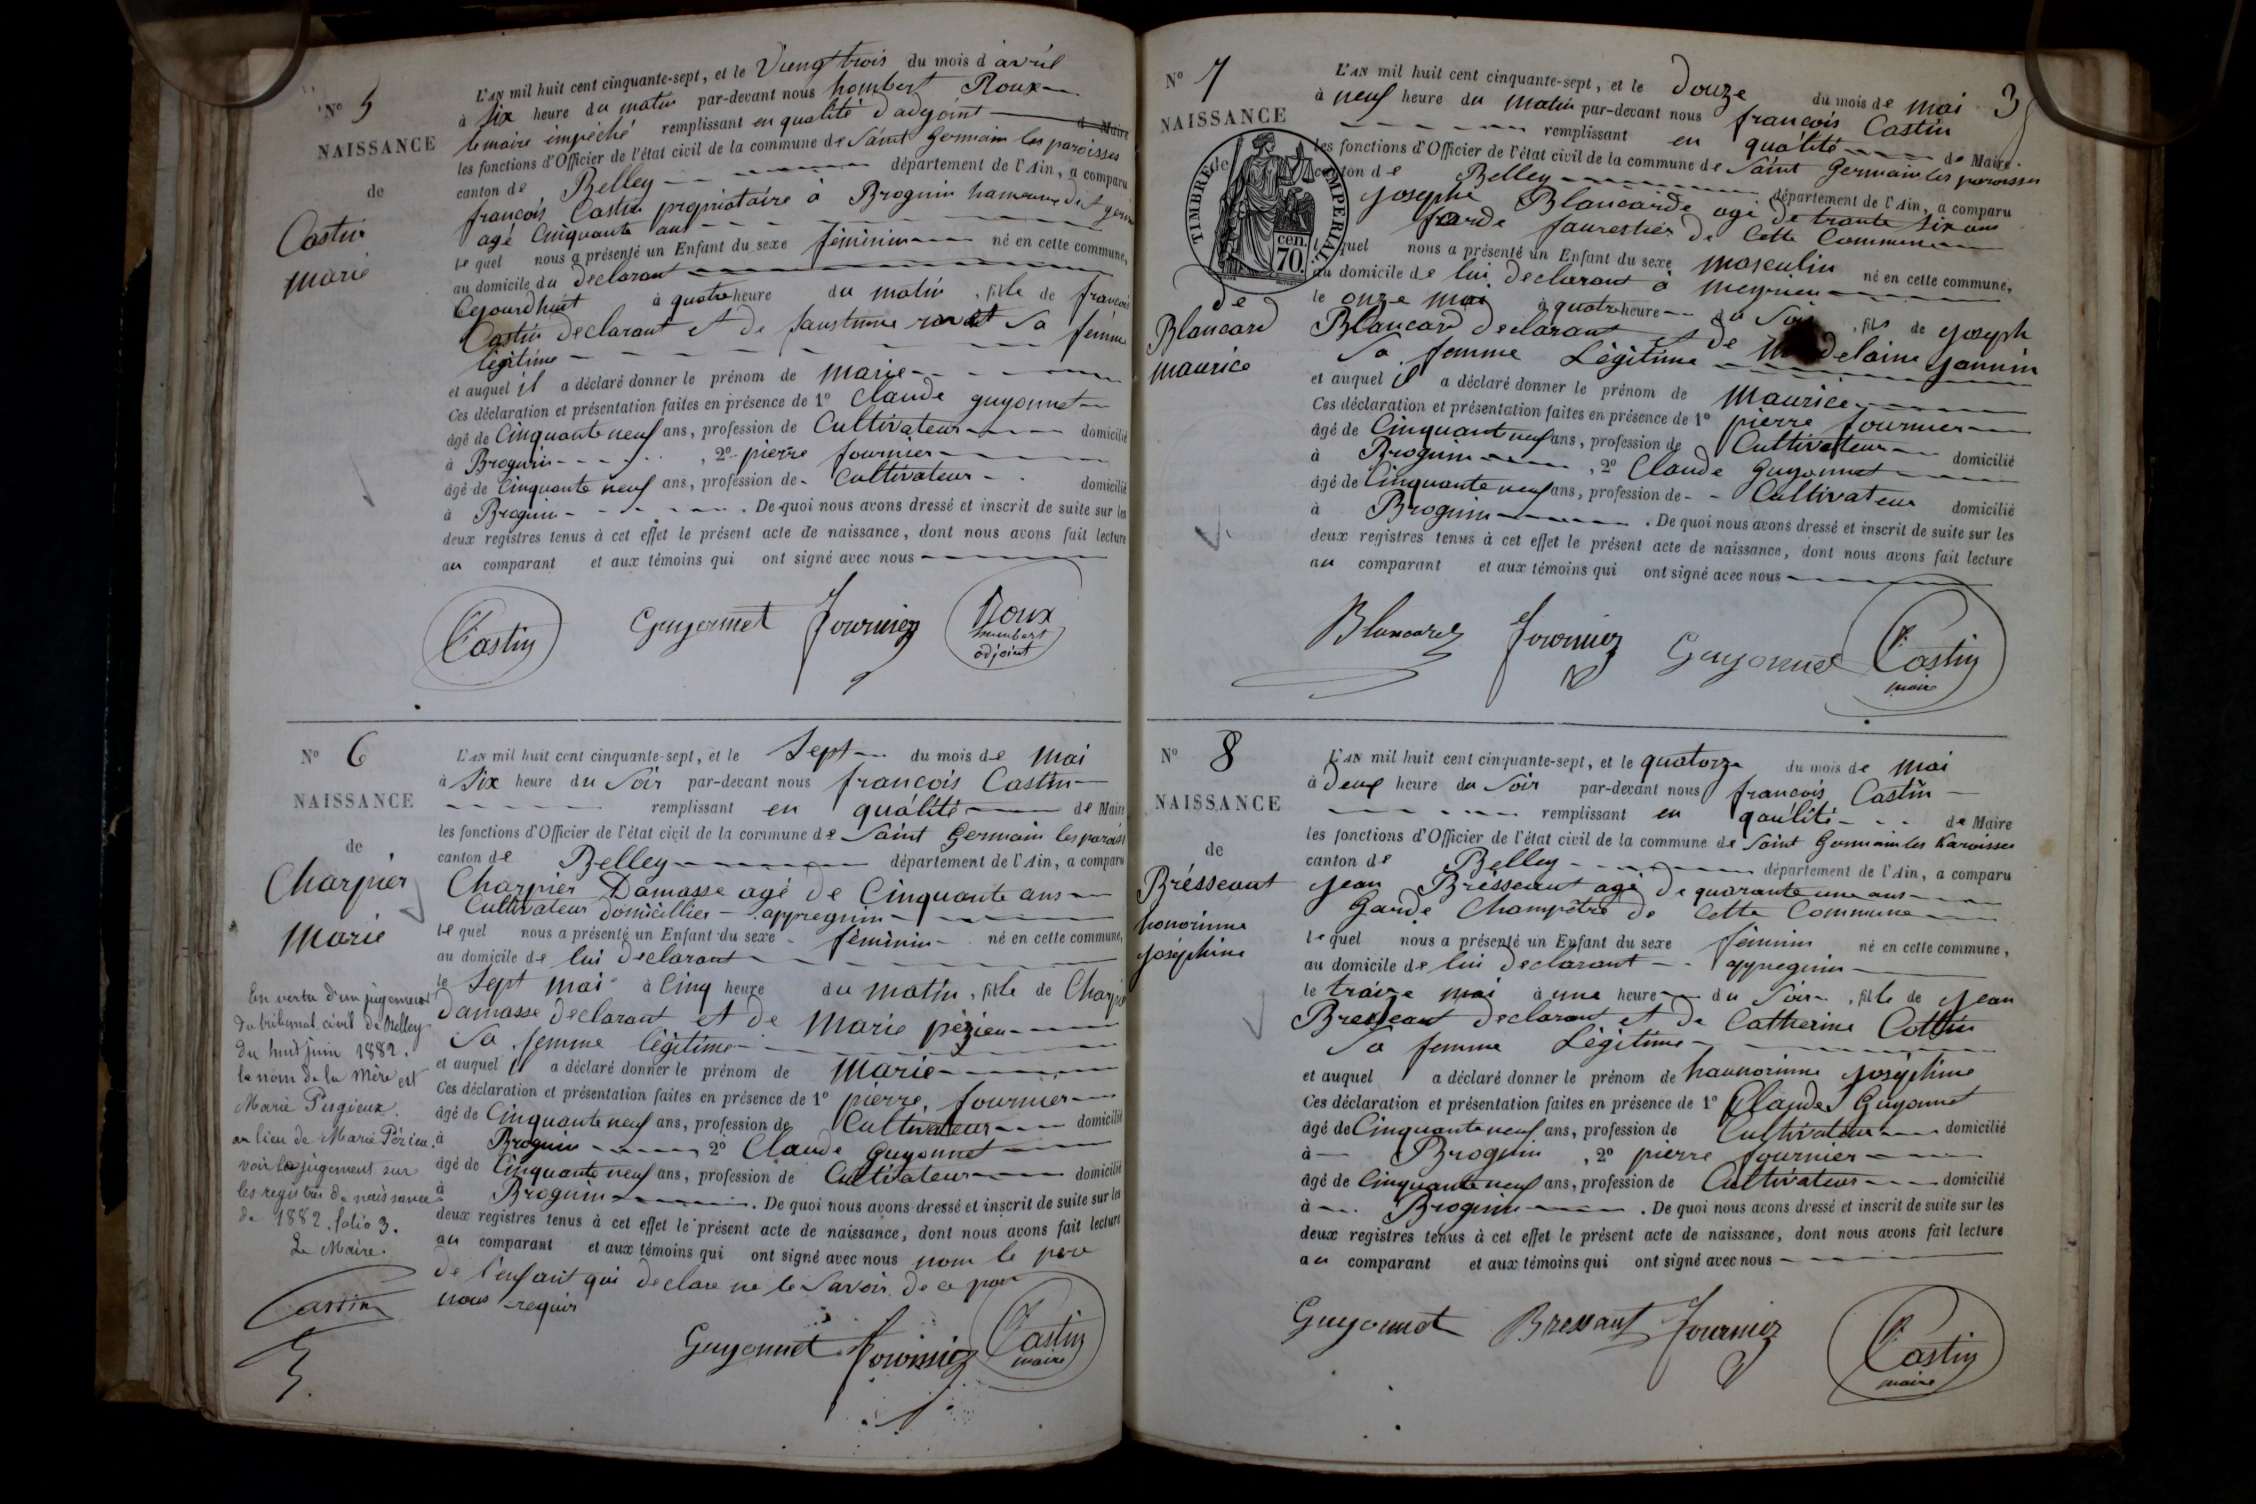 N° 5
NAISSANCE
de
Castin
marie
L'AN mil huit cent cinquante-sept, et le Viengttrois du mois d'avril
à Six heure du matin par-devant nous hombert Roux
le maire impéché remplissant en qualité d'adjoint d Maire
les fonctions d'Officier de l'état civil de la commune de Saint Germain les paroisses
canton de Belley département de l'Ain, a comparu
françois Castin propriotaire à Brognin hameau de St germ
agé Cinquante ans
le quel nous a présenté un Enfant du sexe féminin né en cette commune,
au domicile du declarant
Cejourdhuit à quatre heure du matin, fille de francois
Castin declarant et de faustinne Sa femme
légitime
et auquel il a déclaré donner le prénom de marie
Ces déclaration et présentation faites en présence de 1° Claude guyonnet
âgé de Cinquante neuf ans, profession de Cultivateur domicilié
à Brognin, 2° pierre fournier
âgé de Cinquante neuf ans, profession de Cultivateur domicilié
à Brognin. De quoi nous avons dressé et inscrit de suite sur les
deux registres tenus à cet effet le présent acte de naissance, dont nous avons fait lecture
au comparant et aux témoins qui ont signé avec nous
Castin Guyonnet fournier Roux
humbert
adjoint
N° 6
NAISSANCE
de
Charpier
Marie
En vertu d'un jugement
du tribunal civil de Belley
du huit juin 1882.
le nom de la Mère est
Marie Pugieux.
au lieu de Marie Pézieu.
voir le jugement sur
les registres de naissance
de 1882. folio 3.
Le Maire.
Castin
L'AN mil huit cent cinquante-sept, et le Sept du mois de mai
à Six heure du Soir par-devant nous françois Castin
remplissant en qualité de Maire
les fonctions d'Officier de l'état civil de la commune de Saint Germain les paroiss
canton de Belley département de l'Ain, a comparu
Charpier Damasse agé de Cinquante ans
Cultivateur domicillier appregnin
le quel nous a présenté un Enfant du sexe féminin né en cette commune,
au domicile de lui declarant
le Sept mai à Cinq heure du matin, fille de Charpier
damasse declarant et de Marie pézieu
Sa femme légitime
et auquel il a déclaré donner le prénom de Marie
Ces déclaration et présentation faites en présence de 1° pierre fournier
âgé de Cinquante neuf ans, profession de Cultivateur domicilié
à Brognin 2° Claude Guyonnet
âgé de Cinquante neuf ans, profession de Cultivateur domicilié
à Brognin. De quoi nous avons dressé et inscrit de suite sur les
deux registres tenus à cet effet le présent acte de naissance, dont nous avons fait lecture
au comparant et aux témoins qui ont signé avec nous nom le pere
de l'enfant qui declare ne le Savoir de ce par
nous requis
Guyonnet fournier Castin
maire
N° 7
NAISSANCE
TIMBRE IMPERIAL
cen.
70.
de
Blancard
maurice
3
L'AN mil huit cent cinquante-sept, et le douze du mois de mai
à neuf heure du matin par-devant nous françois Castin
remplissant en quálité de Maire.
les fonctions d'Officier de l'état civil de la commune de Saint Germain les paroisses
canton de Belley département de l'Ain, a comparu
josephe Blancarde agé de trante Six ans
garde faurestier de Cette Commune
le quel nous a présenté un Enfant du sexe masculin né en cette commune,
au domicile de lui declarant à meyrieu
le onze mai à quatre heure du Soir, fils de joseph
Blancard declarant et de delaine jannin
Sa femme Légitime
et auquel il a déclaré donner le prénom de Maurice
Ces déclaration et présentation faites en présence de 1° pierre fournier
âgé de Cinquant neuf ans, profession de Cultivateur domicilié
à Brognin, 2° Claude Guyonnet
âgé de Cinquante neuf ans, profession de Cultivateur domicilié
à Brognin. De quoi nous avons dressé et inscrit de suite sur les
deux registres tenus à cet effet le présent acte de naissance, dont nous avons fait lecture
au comparant et aux témoins qui ont signé avec nous
Blancard fournier Guyonnet Castin
maire
N° 8
NAISSANCE
de
Brésseant
honorinne
joséphine
L'AN mil huit cent cinquante-sept, et le quatorze du mois de mai
à deux heure du Soir par-devant nous françois Castin
remplissant en qaulité de Maire
les fonctions d'Officier de l'état civil de la commune de Saint Germain les Paroisses
canton de Belley département de l'Ain, a comparu
jean Brésseant agé de quarante une ans
Garde Champêtre de Cette Commune
le quel nous a présenté un Enfant du sexe féminin né en cette commune,
au domicile de lui declarant appregnin
le traize mai à une heure du Soir, fille de jean
Bresseant declarant et de Catherine Cottin
Sa femme Légitime
et auquel a déclaré donner le prénom de haunorinne joséphine
Ces déclaration et présentation faites en présence de 1° Claude Guyonnet
âgé de Cinquante neuf ans, profession de Cultivateur domicilié
à Brognin, 2° pierre fournier
âgé de Cinquante neuf ans, profession de Cultivateur domicilié
à Brognin. De quoi nous avons dressé et inscrit de suite sur les
deux registres tenus à cet effet le présent acte de naissance, dont nous avons fait lecture
au comparant et aux témoins qui ont signé avec nous
Guyonnet Bressant fournier Castin
maire